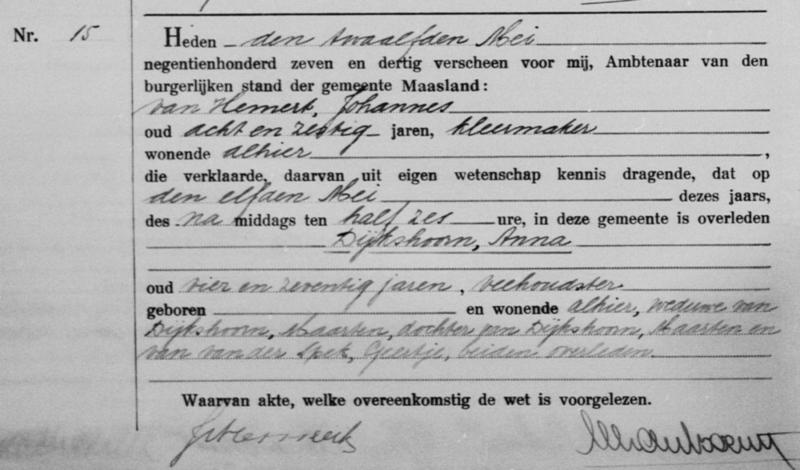 Nr. 15 Heden den twaalfden Mei
negentienhonderd zeven en dertig verscheen voor mij, Ambtenaar van den
burgerlijken stand der gemeente Maasland:
van Hemert, Johannes
oud acht en zestig jaren, kleermaker
wonende alhier,
die verklaarde, daarvan uit eigen wetenschap kennis dragende, dat op
den elfden Mei dezes jaars,
des na middags ten half zes ure, in deze gemeente is overleden
Dijkshoorn, Anna
oud vier en zeventig jaren, veehoudster
geboren en wonende alhier, weduwe van
Dijkshoorn, Maarten, dochter van Dijkshoorn, Maarten en
van van der Spek, Geertje, beiden overleden.
Waarvan akte, welke overeenkomstig de wet is voorgelezen.